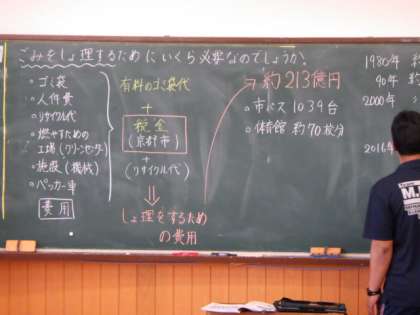 ごみをしょ理するためにいくら必要なのでしょうか。
。ゴミ袋
。人件費
。リサイクル代
。燃やすための
工場(クリーンセンター)
。施設(機械)
。パッカー車
費用
有料のゴミ袋代
+
税金
(京都市)
+
(リサイクル代)
⇓
しょ理をするため
の費用
約213億円
。市バス 1039台
。体育館 約70枚分
1980年 約
40年
2000年
M.